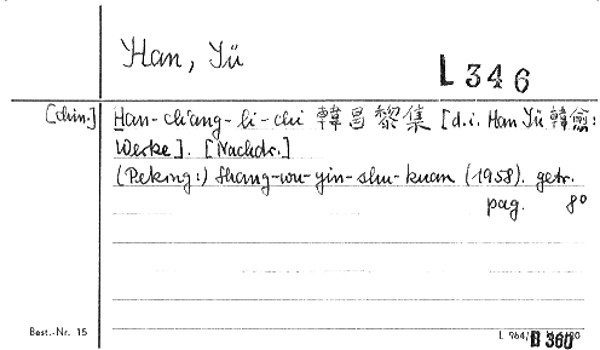 Han, Yü
L 346
[chin.] Han-ch'ang-li-chi 韓昌黎集 [d.i. Han Yü 韓愈:
Werke]. [Nachdr.]
(Peking:) Shang-wu-yin-shu-kuan (1958). getr.
pag. 8°
Best.-Nr. 15
B 360